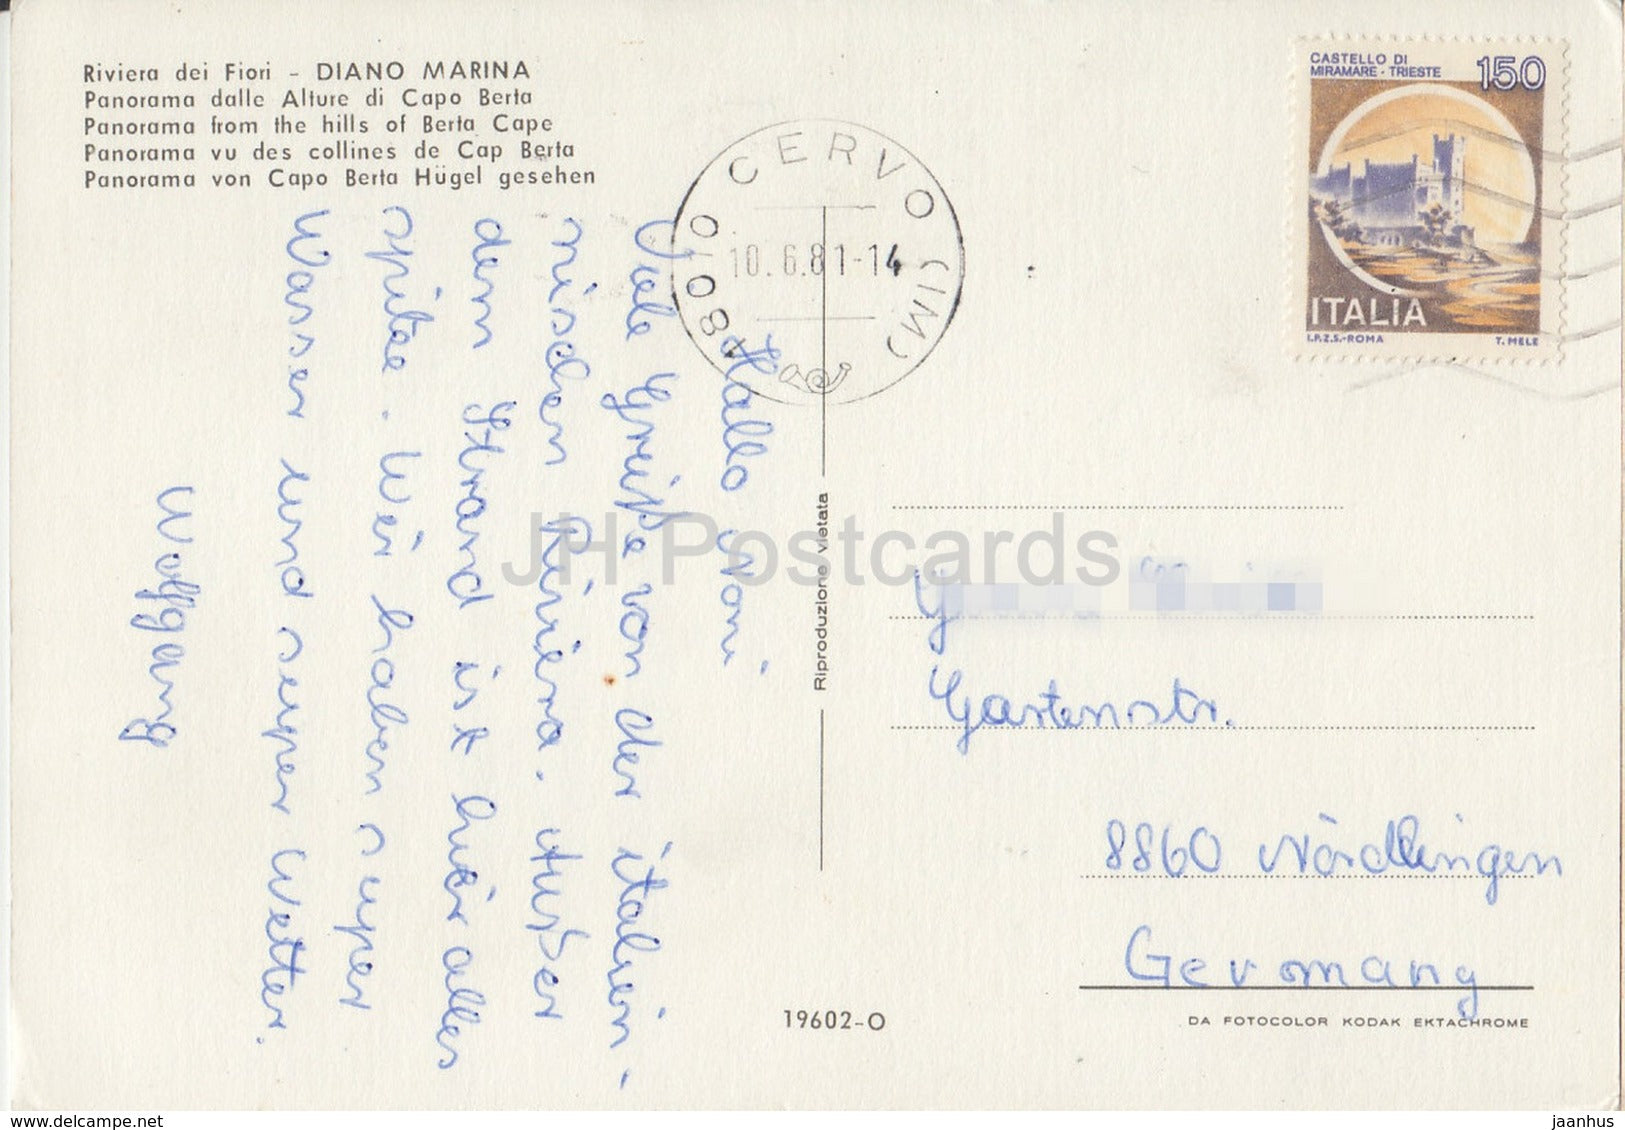 Riviera dei Fiori - DIANO MARINA
Panorama dalle Alture di Capo Berta
Panorama from the hills of Berta Cape
Panorama vu des collines de Cap Berta
Panorama von Capo Berta Hügel gesehen
CASTELLO DI
MIRAMARE - TRIESTE 150
ITALIA
I.P.Z.S.-ROMA T. MELE
18010 CERVO (IM)
10.6.81-14
Hallo Moni
Viele Grüße von der italien-
nischen Riviera. Außer
dem Strand ist hier alles
spitze. Wir haben super
Wasser und super Wetter.
Wolfgang
Riproduzione vietata
Gartenstr.
8860 Nördlingen
Germany
19602-O
DA FOTOCOLOR KODAK EKTACHROME
JH Postcards
www.delcampe.net
jaanhus